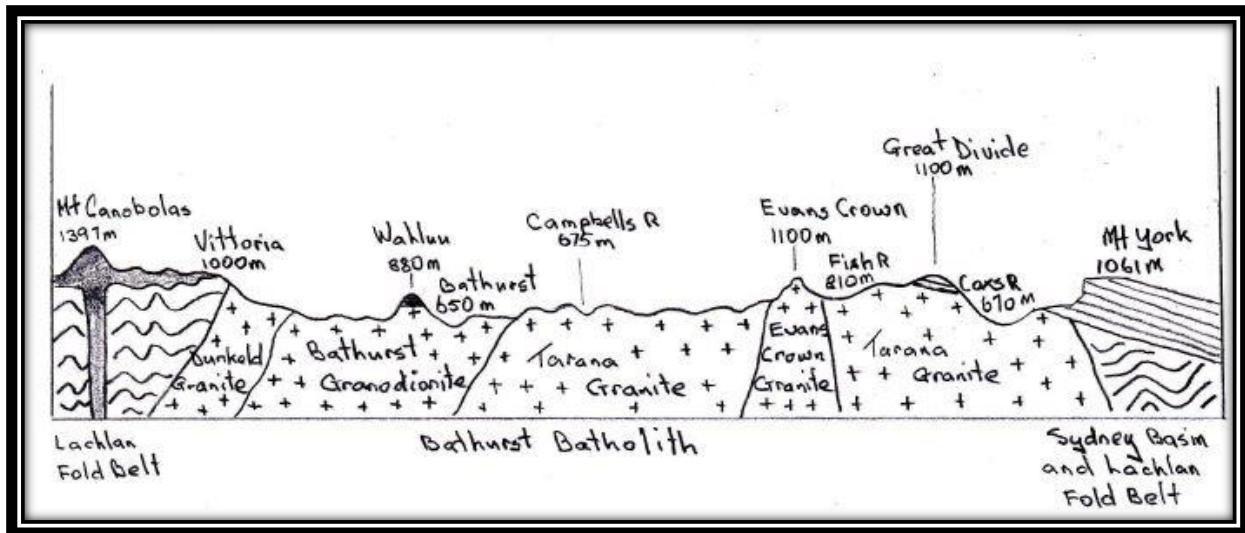 Mt Canobolas
1397m
Vittoria
1000m
Wahluu
880m
Bathurst
650m
Campbells R
675m
Evans Crown
1100m
Fish R
810m
Great Divide
1100m
Coxs R
670m
Mt York
1061m
Dunkeld
Granite
Bathurst
Granodionite
Tarana
Granite
Evans
Crown
Granite
Tarana
Granite
Lachlan
Fold Belt
Bathurst Batholith
Sydney Basin
and Lachlan
Fold Belt